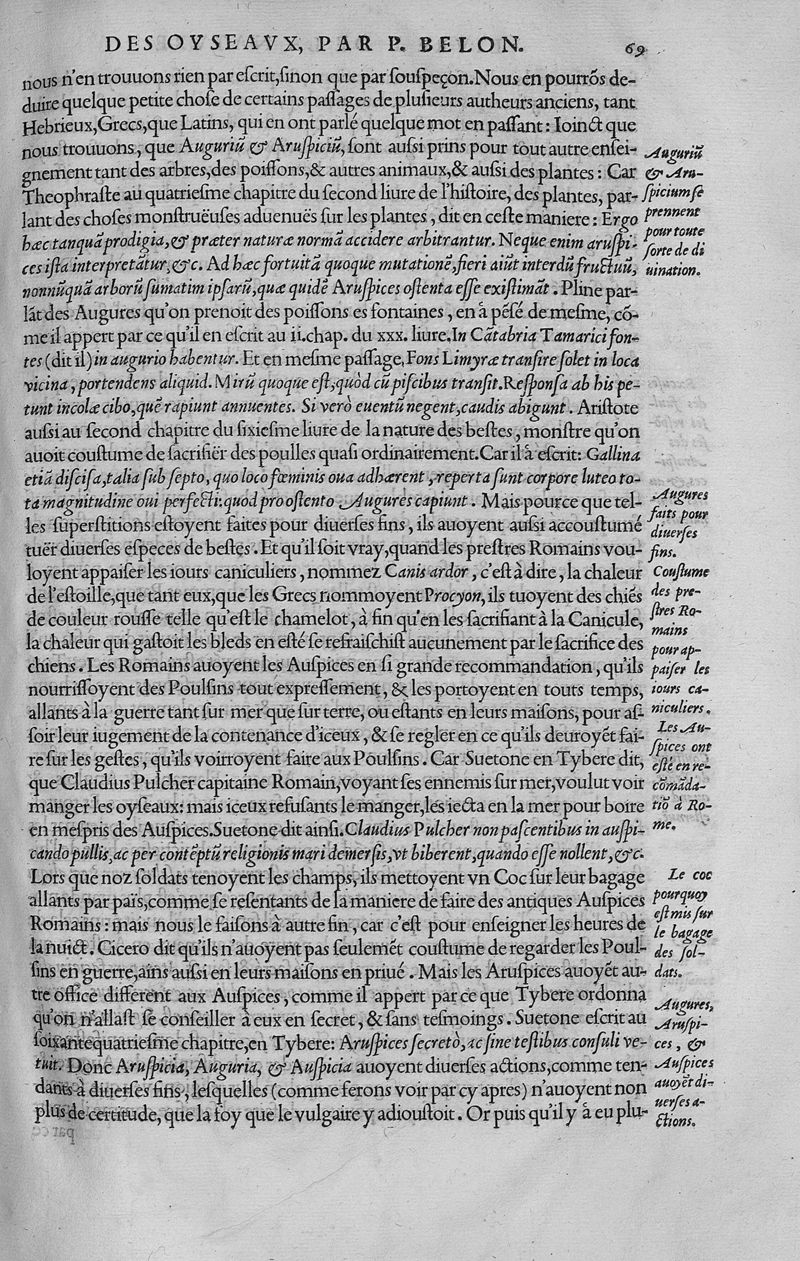 DES OYSEAVX, PAR P. BELON. 69
nous n'en trouuons rien par eſcrit, ſinon que par ſouſpeçon. Nous en pourrõs de-
duire quelque petite choſe de certains paſſages de pluſieurs autheurs anciens, tant
Hebrieux, Grecs, que Latins, qui en ont parlé quelque mot en paſſant: Ioinct que
nous trouuons, que Auguriũ & Aruſpiciũ, ſont auſſi prins pour tout autre enſei-
gnement tant des arbres, des poiſſons, & autres animaux, & auſſi des plantes: Car
Theophraſte au quatrieſme chapitre du ſecond liure de l'hiſtoire, des plantes, par-
lant des choſes monſtrueuſes aduenuës ſur les plantes, dit en ceſte maniere: Ergo
hæc tanquã prodigia, & præter naturæ normã accidere arbitrantur. Neque enim aruſpi-
ces iſta interpretãtur, &c. Ad hæc fortuitã quoque mutationẽ, fieri aiũt interdũ fructuũ,
nonnũquã arborũ ſumatim ipſarũ, quæ quidẽ Aruſpices oſtenta eſſe exiſtimãt. Pline par-
lãt des Augures qu'on prenoit des poiſſons es fontaines, en à pẽſé de meſme, cõ-
me il appert par ce qu'il en eſcrit au ii. chap. du xxx. liure. In Cãtabria Tamarici fon-
tes (dit il) in augurio habentur. Et en meſme paſſage, Fons Limyræ tranſire ſolet in loca
vicina, portendens aliquid. Mirũ quoque eſt, quòd cũ piſcibus tranſit. Reſponſa ab his pe-
tunt incolæ cibo, quẽ rapiunt annuentes. Si verò euentũ negent, caudis abigunt. Ariſtote
auſſi au ſecond chapitre du ſixieſme liure de la nature des beſtes, monſtre qu'on
auoit couſtume de ſacrifiër des poulles quaſi ordinairement. Car il à eſcrit: Gallina
etiã diſciſa, talia ſub ſepto, quo loco fœminis oua adhærent, reperta ſunt corpore luteo to-
ta magnitudine oui perfecti: quod pro oſtento Augures capiunt. Mais pource que tel-
les ſuperſtitions eſtoyent faites pour diuerſes fins, ils auoyent auſſi accouſtumé
tuër diuerſes eſpeces de beſtes. Et qu'il ſoit vray, quand les preſtres Romains vou-
loyent appaiſer les iours caniculiers, nommez Canis ardor, c'eſt à dire, la chaleur
de l'eſtoille, que tant eux, que les Grecs nommoyent Procyon, ils tuoyent des chiẽs
de couleur rouſſe telle qu'eſt le chamelot, à fin qu'en les ſacrifiant à la Canicule,
la chaleur qui gaſtoit les bleds en eſté ſe refraiſchiſt aucunement par le ſacrifice des
chiens. Les Romains auoyent les Auſpices en ſi grande recommandation, qu'ils
nourriſſoyent des Poulſins tout expreſſement, & les portoyent en touts temps,
allants à la guerre tant ſur mer que ſur terre, ou eſtants en leurs maiſons, pour aſ-
ſoir leur iugement de la contenance d'iceux, & ſe regler en ce qu'ils deuroyẽt fai-
re ſur les geſtes, qu'ils voirroyent faire aux Poulſins. Car Suetone en Tybere dit,
que Claudius Pulcher capitaine Romain, voyant ſes ennemis ſur mer, voulut voir
manger les oyſeaux: mais iceux refuſants le manger, les iecta en la mer pour boire
en meſpris des Auſpices. Suetone dit ainſi. Claudius Pulcher non paſcentibus in auſpi-
cando pullis, ac per contẽptũ religionis mari demerſis, vt biberent, quando eſſe nollent, &c.
Lors que noz ſoldats tenoyent les champs, ils mettoyent vn Coc ſur leur bagage
allants par païs, comme ſe reſentants de la maniere de faire des antiques Auſpices
Romains: mais nous le faiſons à autre fin, car c'eſt pour enſeigner les heures de
la nuict. Cicero dit qu'ils n'auoyent pas ſeulemẽt couſtume de regarder les Poul-
ſins en guerre, ains auſſi en leurs maiſons en priué. Mais les Aruſpices auoyẽt au-
tre office different aux Auſpices, comme il appert par ce que Tybere ordonna
qu'on n'allaſt ſe conſeiller à eux en ſecret, & ſans teſmoings. Suetone eſcrit au
ſoixantequatrieſme chapitre, en Tybere: Aruſpices ſecretò, ac ſine teſtibus conſuli ve-
tuit. Donc Aruſpicia, Auguria, & Auſpicia auoyent diuerſes actions, comme ten-
dants à diuerſes fins, leſquelles (comme ferons voir par cy apres) n'auoyent non
plus de certitude, que la foy que le vulgaire y adiouſtoit. Or puis qu'il y à eu plu-
Auguriũ
& Aru-
ſpicium ſe
prennent
pour toute
ſorte de di
uination.
Augures
faits pour
diuerſes
fins.
Couſtume
des pre-
ſtres Ro-
mains
pour ap-
paiſer les
iours ca-
niculiers.
Les Au-
ſpices ont
eſté en re-
cõmãda-
tiõ à Ro-
me.
Le coc
pourquoy
eſt mis ſur
le bagage
des ſol-
dats.
Augures,
Aruſpi-
ces, &
Auſpices
auoyẽt di-
uerſes a-
ctions.